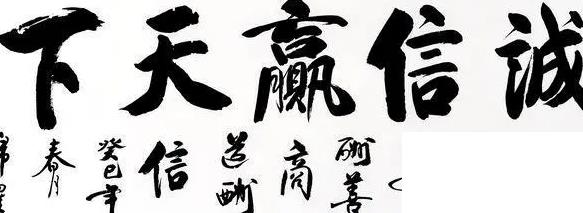 誠信贏天下
酬善商道酬信癸巳年春月